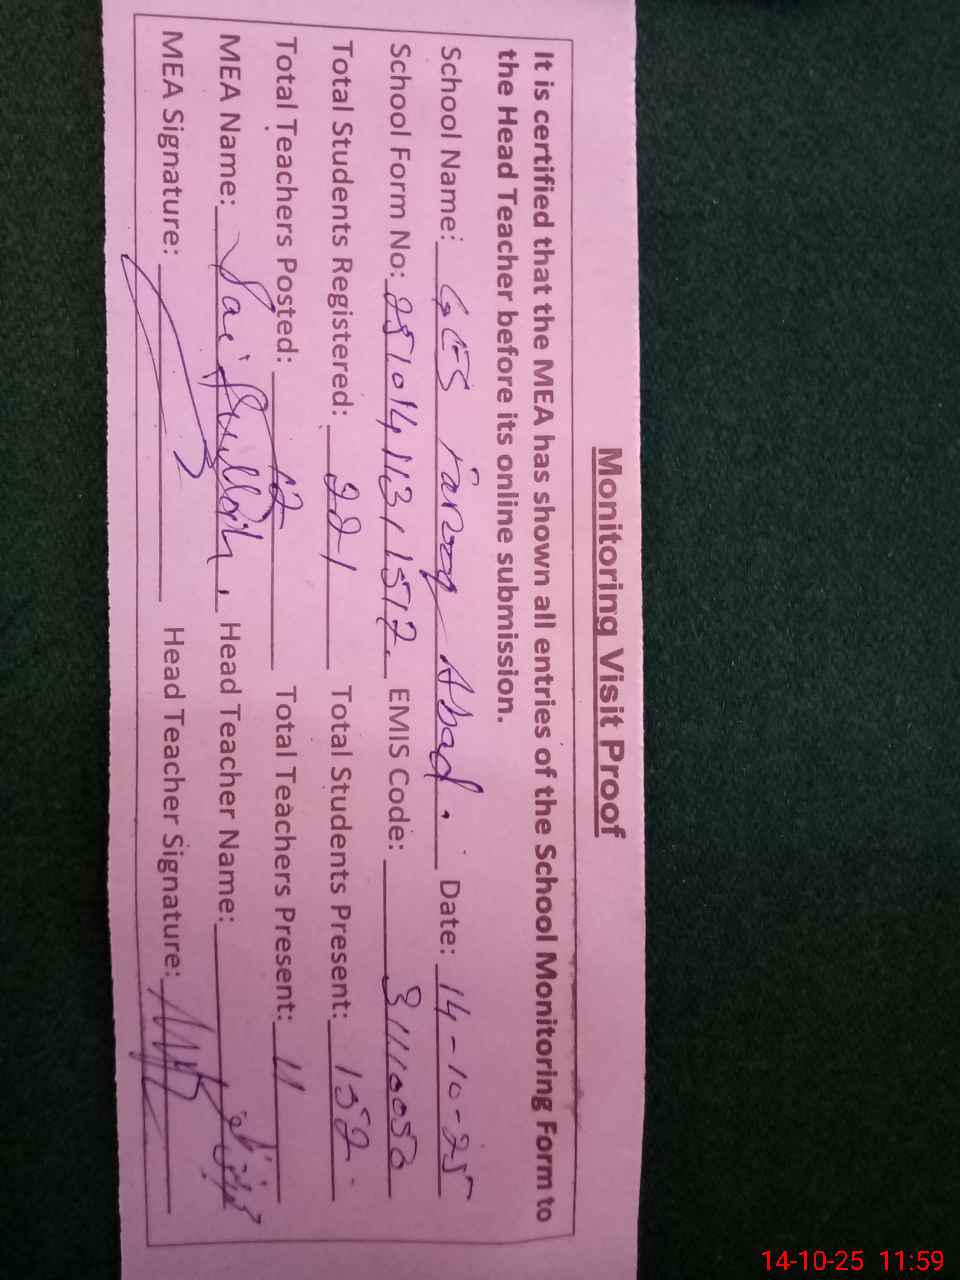 Monitoring Visit Proof
It is certified that the MEA has shown all entries of the School Monitoring Form to
the Head Teacher before its online submission.
School Name: GES Farooq Abad. Date: 14-10-25
School Form No: 251014113, 1512 EMIS Code: 31110050
Total Students Registered: 221 Total Students Present: 152
Total Teachers Posted: 12 Total Teachers Present: 11
MEA Name: Saifullah, Head Teacher Name:
MEA Signature: Head Teacher Signature:
14-10-25 11:59